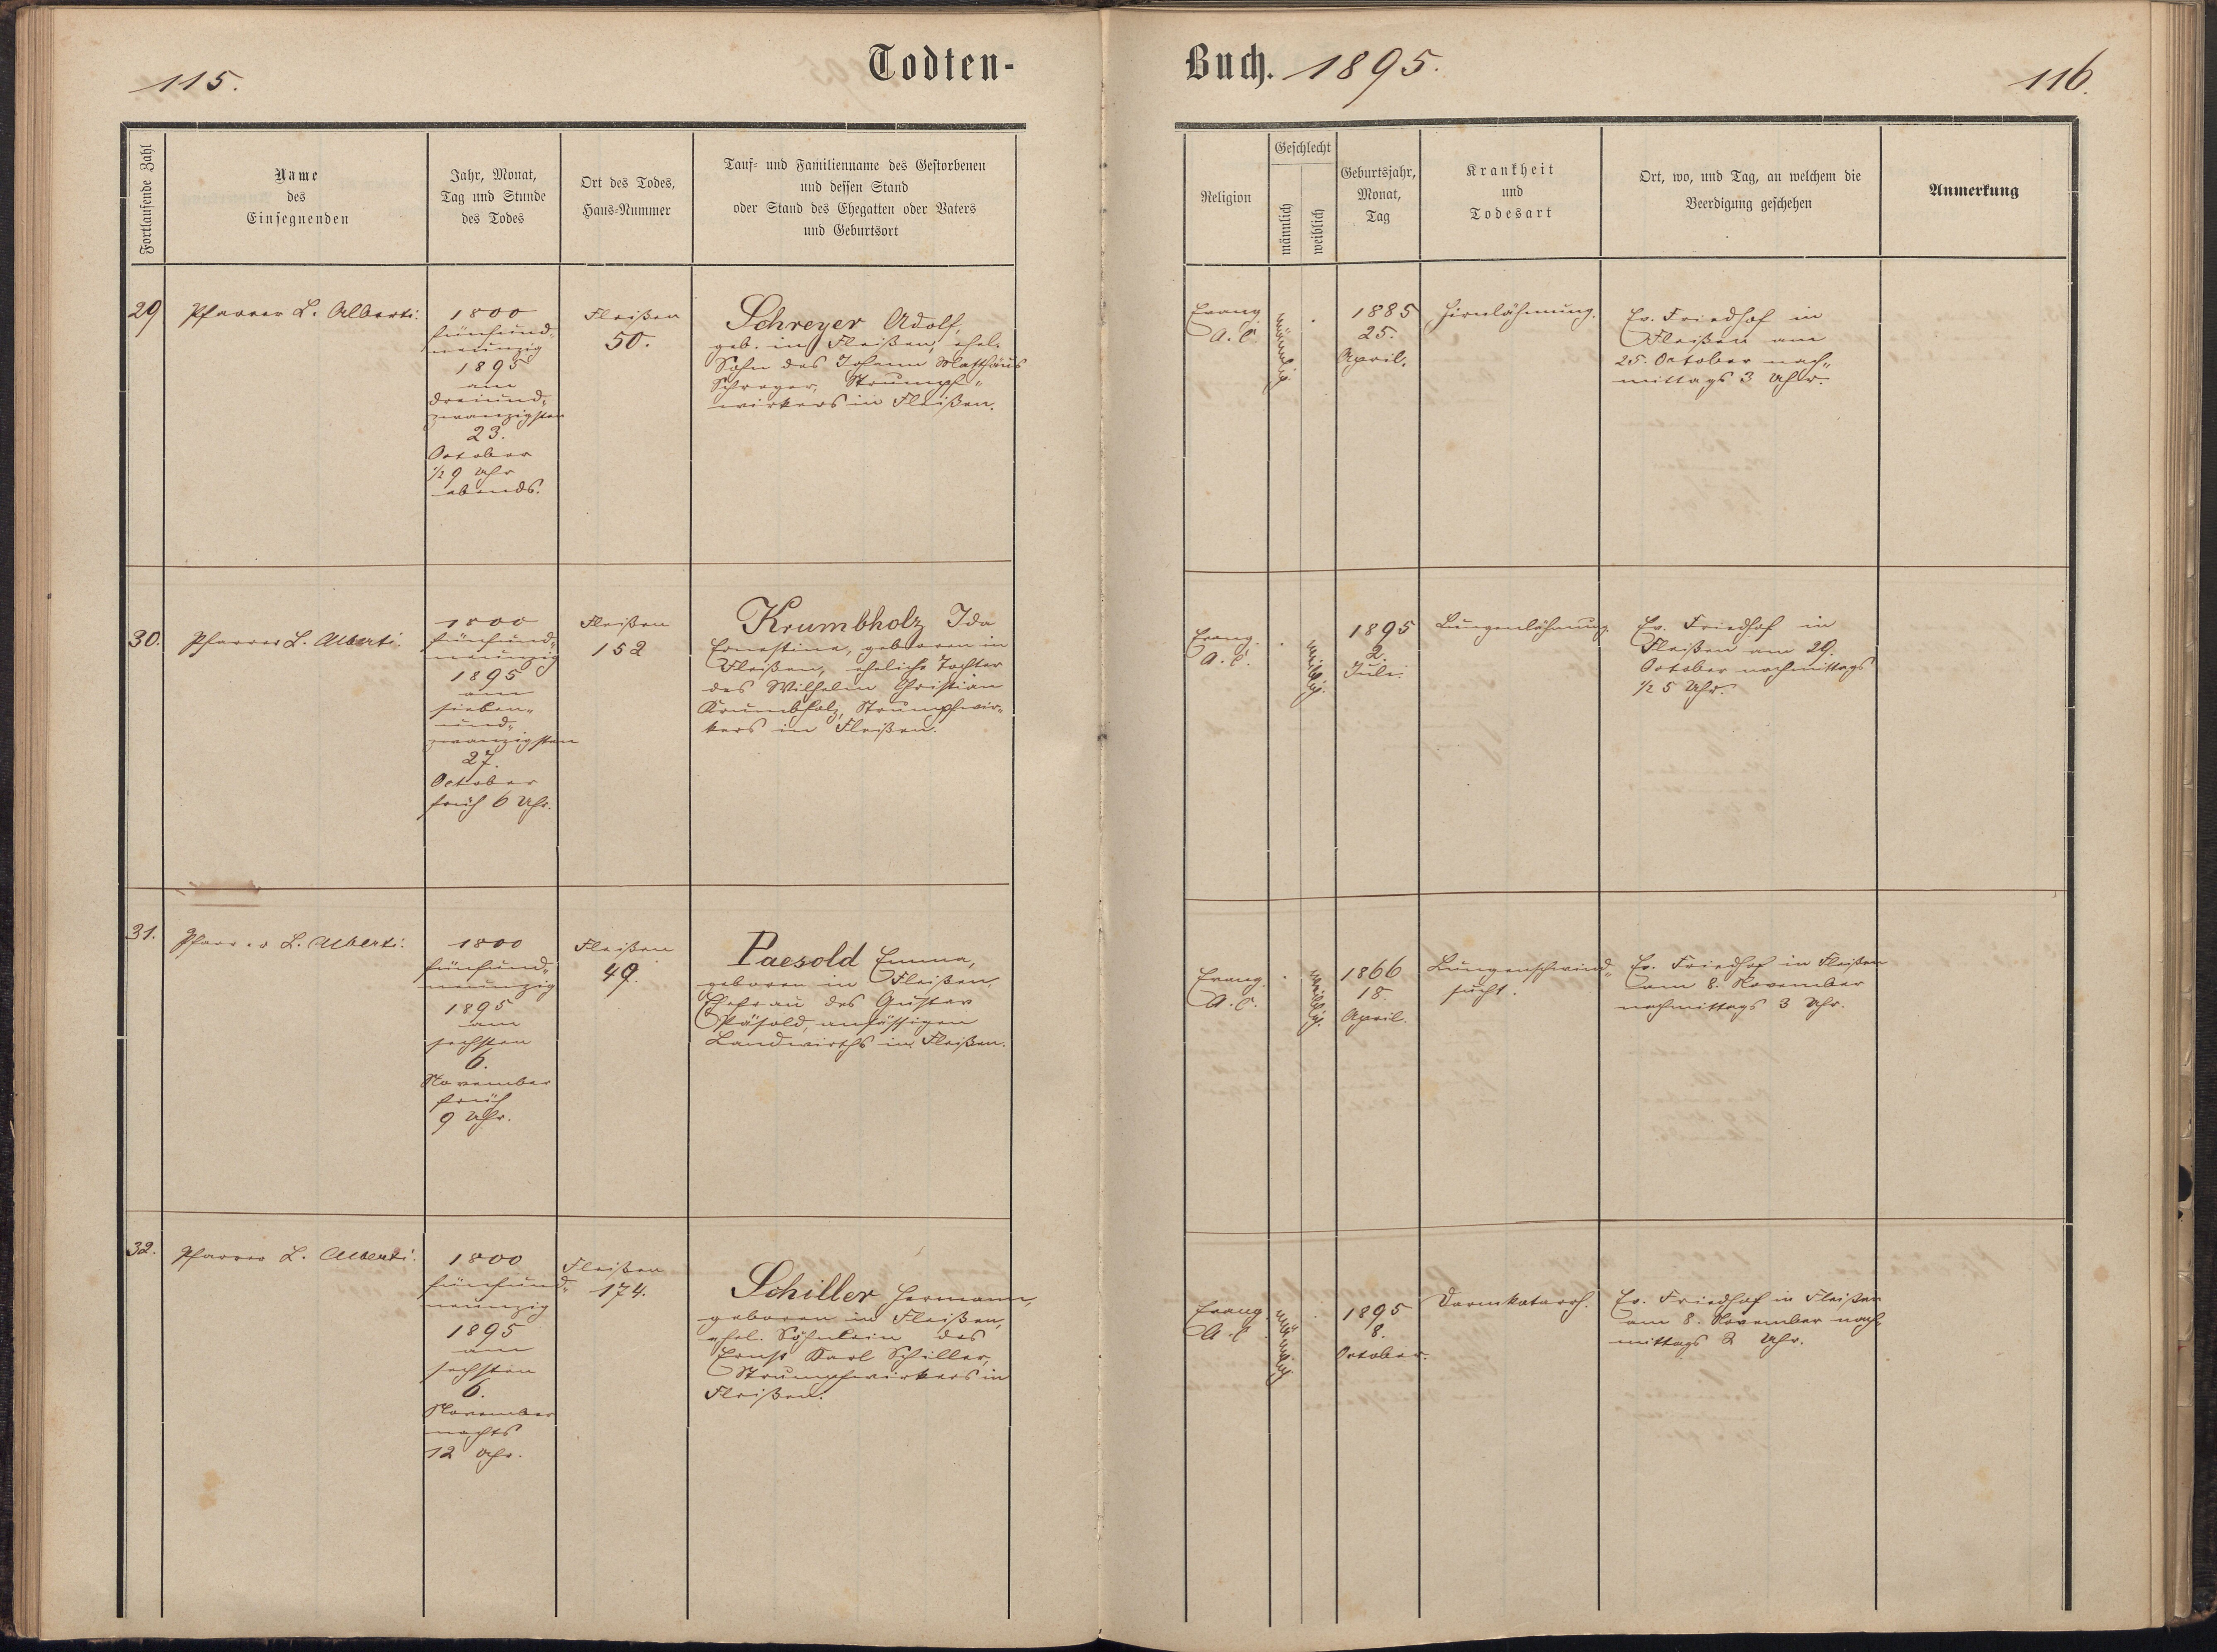 115.
Todten-
Fortlaufende Zahl
Name
des
Einsegnenden
Jahr, Monat,
Tag und Stunde
des Todes
Ort des Todes,
Haus-Nummer
Tauf- und Familienname des Gestorbenen
und dessen Stand
oder Stand des Ehegatten oder Vaters
und Geburtsort
29
Pfarrer L. Alberti.
1800
fünfund-
neunzig
1895
am
dreiund-
zwanzigsten
23.
October
1/2 9 Uhr
abends.
Fleißen
50.
Schreyer Adolf,
geb. in Fleißen, ehel.
Sohn des Johann Matthäus
Schreyer, Strumpf-
wirkers in Fleißen.
30.
Pfarrer L. Alberti.
1800
fünfund-
neunzig
1895
am
sieben-
und-
zwanzigsten
27.
October
früh 6 Uhr.
Fleißen
152
Krumbholz Ida
Ernestine, geboren in
Fleißen, eheliche Tochter
des Wilhelm Christian
Krumbholz, Strumpfwir-
kers in Fleißen.
31.
Pfarrer L. Alberti.
1800
fünfund-
neunzig
1895
am
sechsten
6.
November
früh
9 Uhr.
Fleißen
49.
Paesold Emma,
geboren in Fleißen,
Ehefrau des Gustav
Päsold, ansässigen
Landwirths in Fleißen.
32.
Pfarrer L. Alberti.
1800
fünfund-
neunzig
1895
am
sechsten
6.
November
nachts
12 Uhr.
Fleißen
174.
Schiller Hermann,
geboren in Fleißen,
ehel. Söhnlein des
Ernst Karl Schiller,
Strumpfwirkers in
Fleißen.
Buch. 1895.
116.
Religion
Geschlecht
männlich
weiblich
Geburtsjahr,
Monat,
Tag
Krankheit
und
Todesart
Ort, wo, und Tag, an welchem die
Beerdigung geschehen
Anmerkung
Evang.
A. C.
männlich.
1885
25.
April.
Hirnlähmung.
Ev. Friedhof in
Fleißen am
25. October nach-
mittags 3 Uhr.
Evang.
A. C.
weiblich.
1895
2.
Juli.
Lungenlähmung.
Ev. Friedhof in
Fleißen am 29.
October nachmittags
1/2 5 Uhr.
Evang.
A. C.
weiblich.
1866
18.
April.
Lungenschwind-
sucht.
Ev. Friedhof in Fleißen
am 8. November
nachmittags 3 Uhr.
Evang.
A. C.
männlich.
1895
8.
October.
Darmkatarrh.
Ev. Friedhof in Fleißen
am 8. November nach-
mittags 2 Uhr.